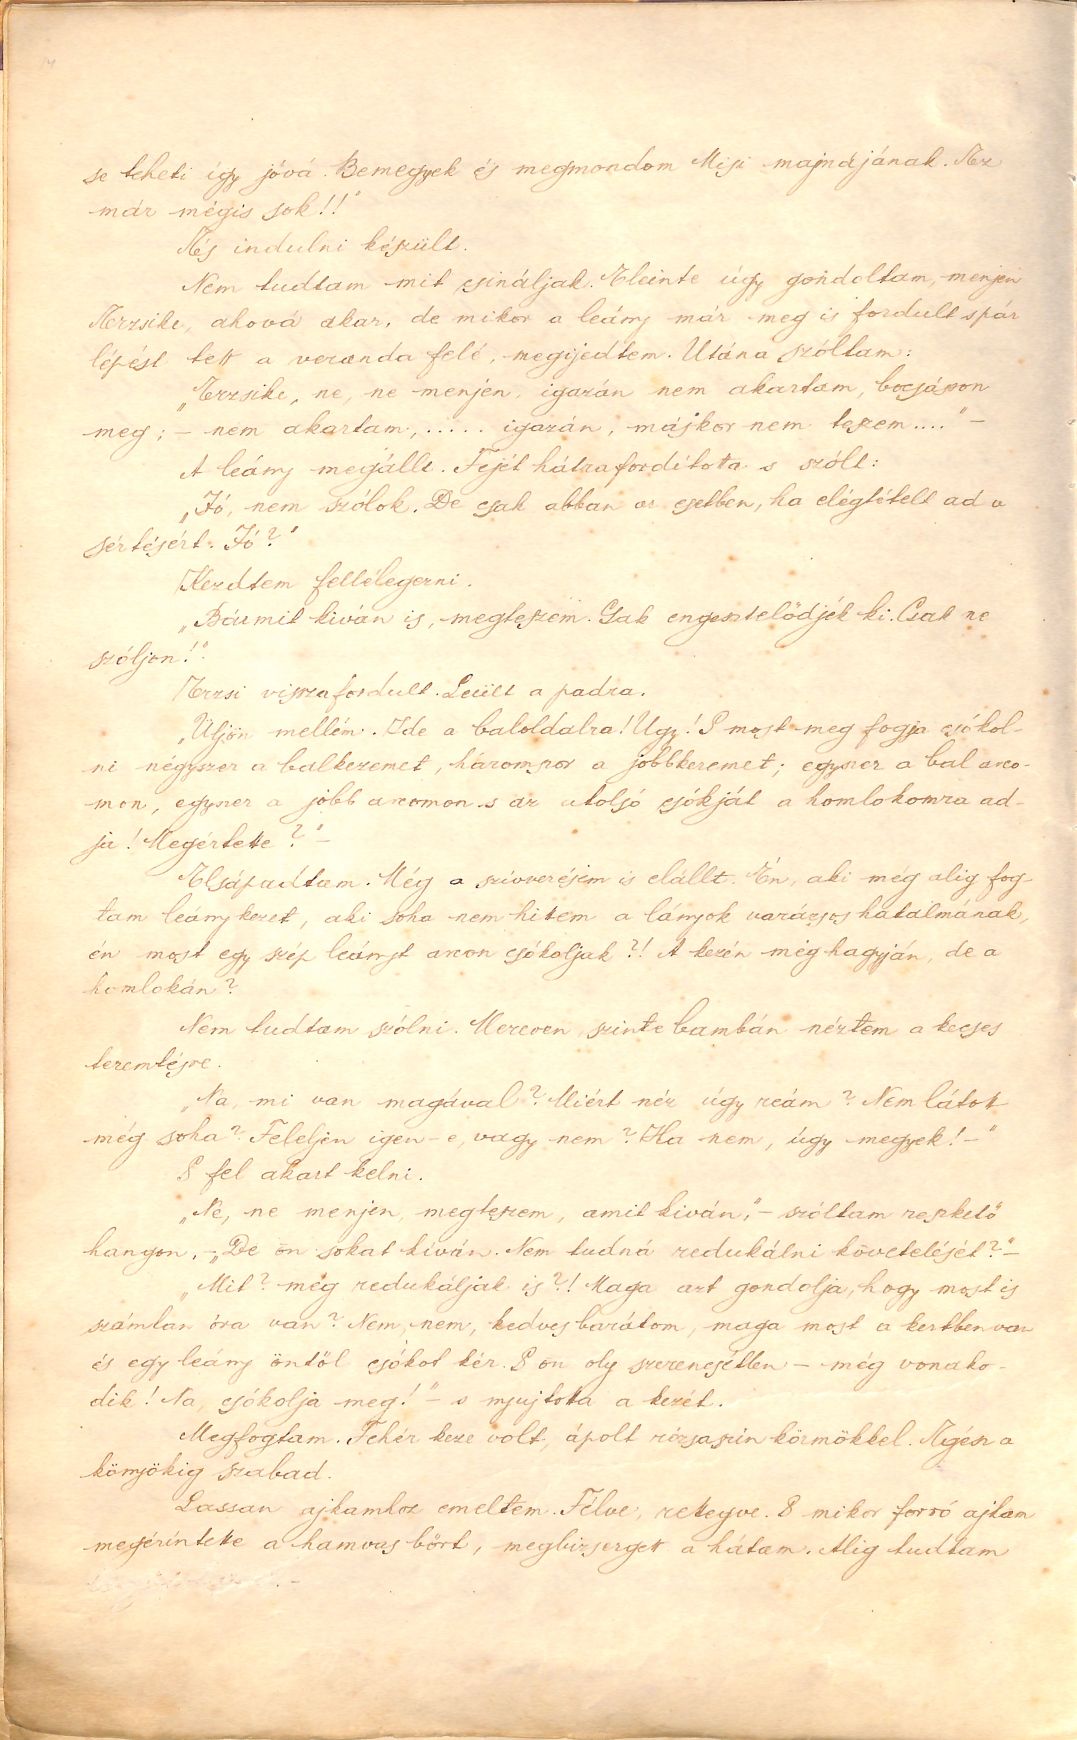 14
se teheti így jóvá. Bemegyek és megmondom Misi majnájának. Ez
már mégis sok!!"
És indulni készült.
Nem tudtam mit csináljak. Eleinte úgy gondoltam, menjen
Erzsike, ahová akar, de mikor a leány már meg is fordult s pár
lépést tett a veranda felé, megijedtem. Utána szóltam:
„Erzsike, ne, ne menjen, igazán nem akartam, bocsásson
meg; – nem akartam, ..... igazán, máskor nem teszem...." –
A leány megállt. Fejét hátrafordította s szólt:
„Jó, nem szólok. De csak abban az esetben, ha elégtételt ad a
sértésért. Jó?"
Kezdtem fellélegezni.
„Bármit kíván is, megteszem. Csak engesztelődjék ki. Csak ne
szóljon!".
Erzsi visszafordult. Leült a padra.
„Üljön mellém. Ide a baloldalra! Ugy! S most meg fogja csókol-
ni négyszer a balkezemet, háromszor a jobbkezemet; egyszer a bal arco-
mon, egyszer a jobb arcomon s az utolsó csókját a homlokomra ad-
ja! Megértette?" –
Elsápadtam. Még a szívverésem is elállt. Én, aki még alig fog-
tam leány kezet, aki soha nem hitem a lányok varázsos hatalmának,
én most egy szép leányt arcon csókoljak?! A kezén még hagyján, de a
homlokán?
Nem tudtam szólni. Mereven, szinte bambán néztem a kecses
teremtésre.
„Na, mi van magával? Miért néz úgy reám? Nem látott
még soha? Feleljen igen-e, vagy nem? Ha nem, úgy megyek! –"
S fel akart kelni.
„Ne, ne menjen, megteszem, amit kíván," – szóltam reszkető
hangon, – „De ön sokat kíván. Nem tudná redukálni követelését?" –
„Mit? még redukáljak is?! Maga azt gondolja, hogy most is
számtan óra van? Nem, nem, kedves barátom, maga most a kertben van
és egy leány öntől csókot kér. S ön oly szerencsétlen – még vonako-
dik! Na, csókolja meg!" – s nyujtotta a kezét.
Megfogtam. Fehér keze volt, ápolt rózsaszín körmökkel. Egész a
könyökig szabad.
Lassan ajkamhoz emeltem. Félve, rettegve. S mikor forró ajkam
megérintette a hamvas bőrt, megbizsergett a hátam. Alig tudtam